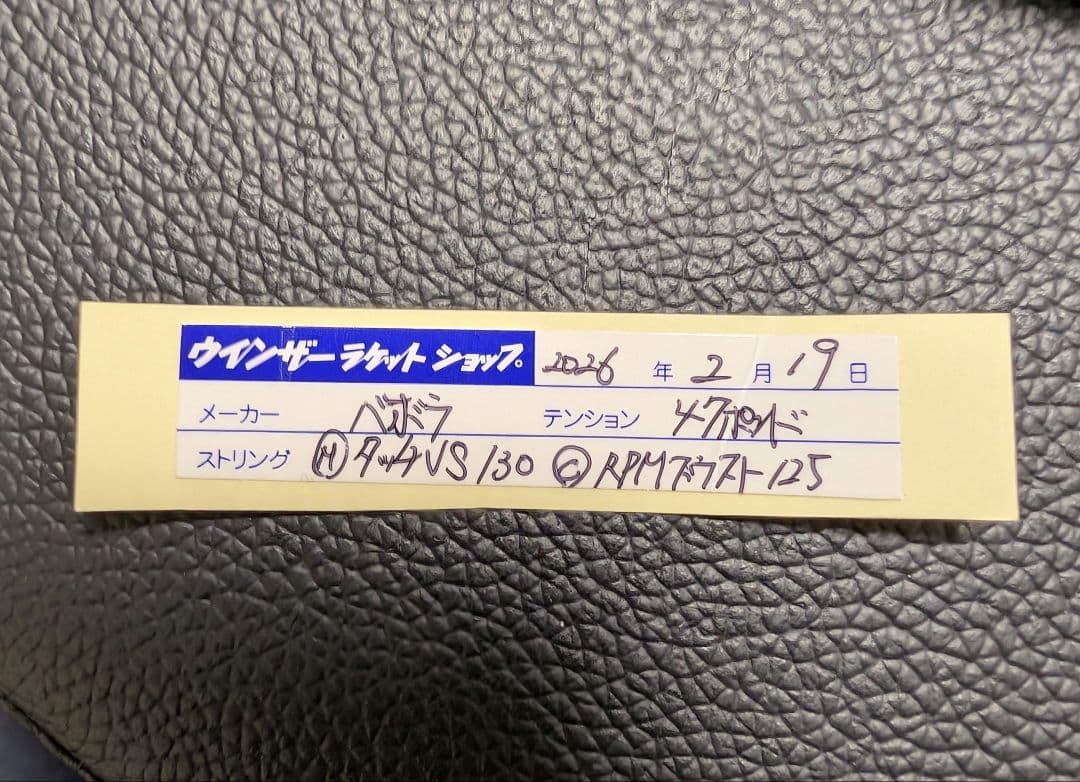 ウインザーラケットショップ。 2026年2月19日
メーカー バボラ テンション 47ポンド
ストリング Ⓜ タッチVS 130 Ⓒ RPMブラスト 125